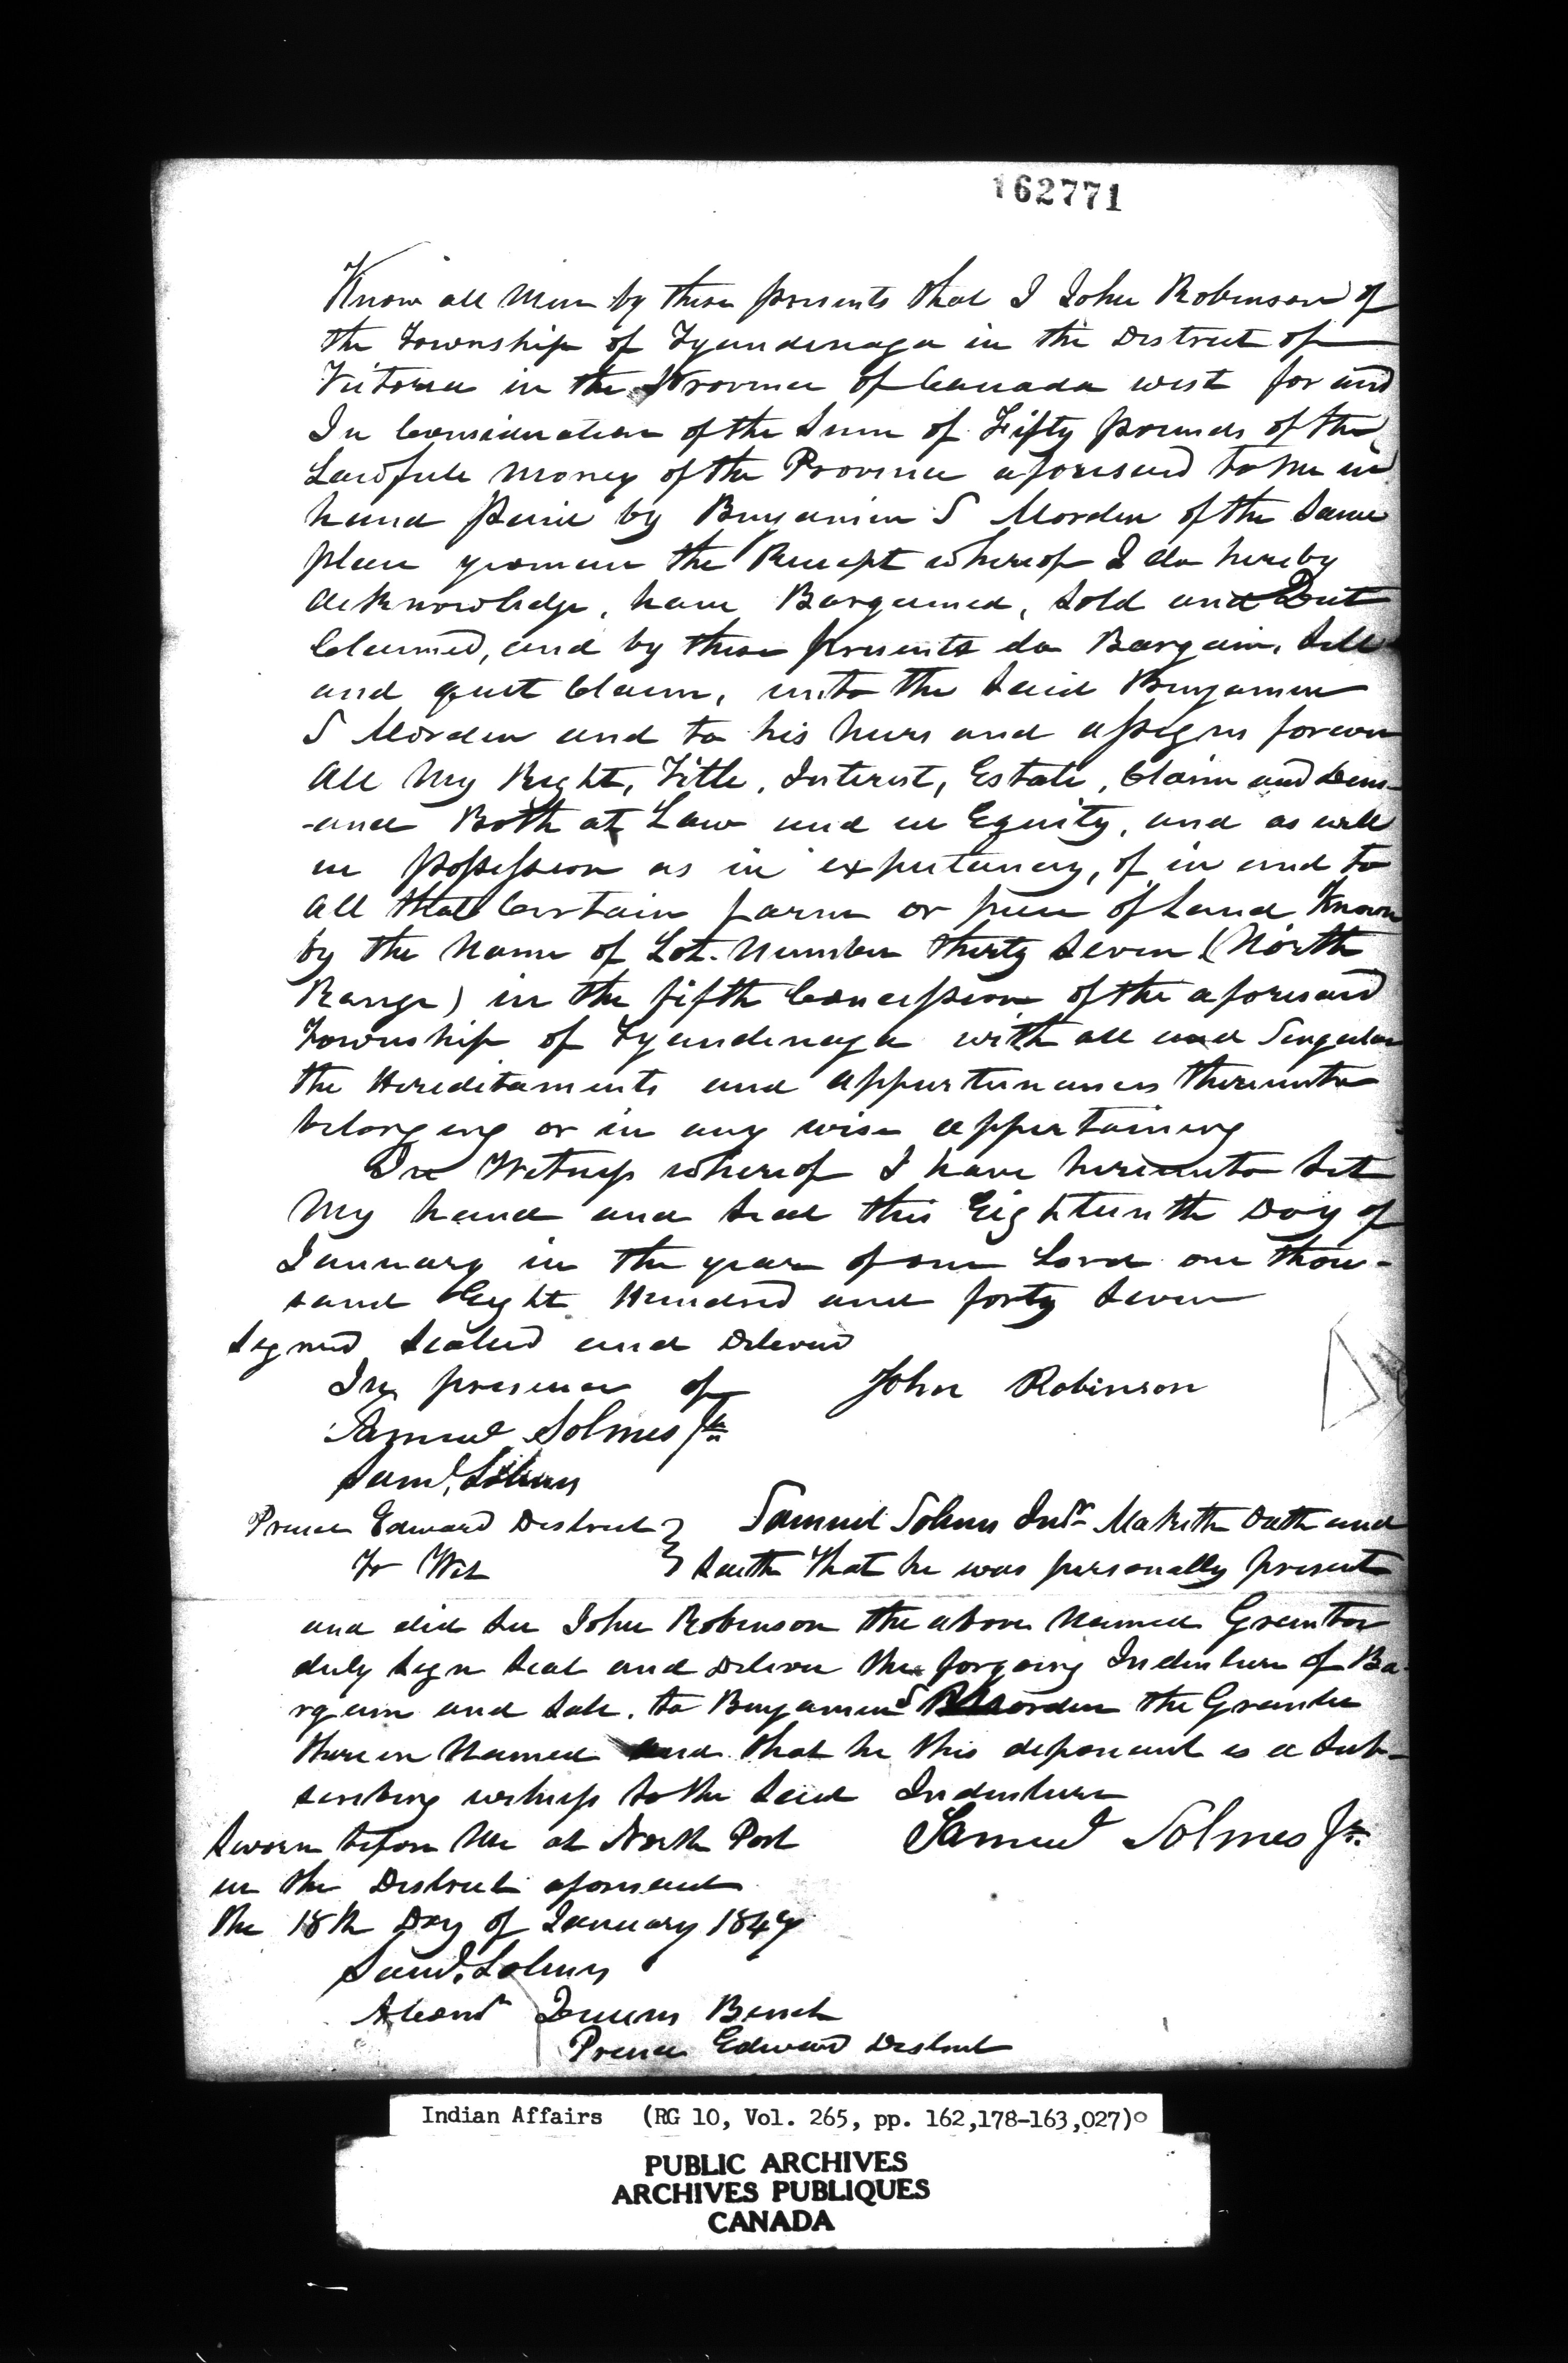 162771
Know all Men by these presents that I John Robinson of
the Township of Tyendenaga in the District of
Victoria in the Province of Canada west for and
In Consideration of the Sum of Fifty pounds of the
Lawfull money of the Province aforesaid to me in
hand paid by Benjamin S Morden of the Same
place yeoman the Receipt whereof I do hereby
acknowledge, have Bargained, Sold and Quit
Claimed, and by these presents do Bargain, Sell
and quit Claim, unto the Said Benjamin
S Morden and to his heirs and assigns forever
All My Right, Title, Interest, Estate, Claim and Dem-
-and Both at Law and in Equity, and as well
in possession as in expectancy, of in and to
All that Certain farm or piece of Land Known
by the Name of Lot Number thirty Seven (North
Range) in the fifth Concession of the aforesaid
Township of Tyendenaga with all and Singular
the Hereditaments and appurtenances thereunto
belonging or in any wise appertaining
In Witness whereof I have hereunto Set
My hand and Seal this Eighteenth Day of
January in the year of our Lord one thou-
sand Eight Hundred and forty Seven
Signed Sealed and Delivered
In presence of John Robinson
Samuel Solmes Jr
Saml. Solmes
Prince Edward District } Samuel Solmes Junr Maketh Oath and
To Wit } Saith that he was personally present
and did See John Robinson the above Named Grantor
duly Sign Seal and Deliver the forgoing Indenture of Ba-
rgain and Sale, to Benjamin S Morden the Grantee
therein Named and that he this deponant is a Sub-
scribing witness to the Said Indenture
Sworn before Me at North Port Samuel Solmes Jr.
in the District aforesaid
the 18th Day of January 1847
Saml. Solmes
Queens Bench
Prince Edward District
Indian Affairs (RG 10, Vol. 265, pp. 162,178-163,027)
PUBLIC ARCHIVES
ARCHIVES PUBLIQUES
CANADA